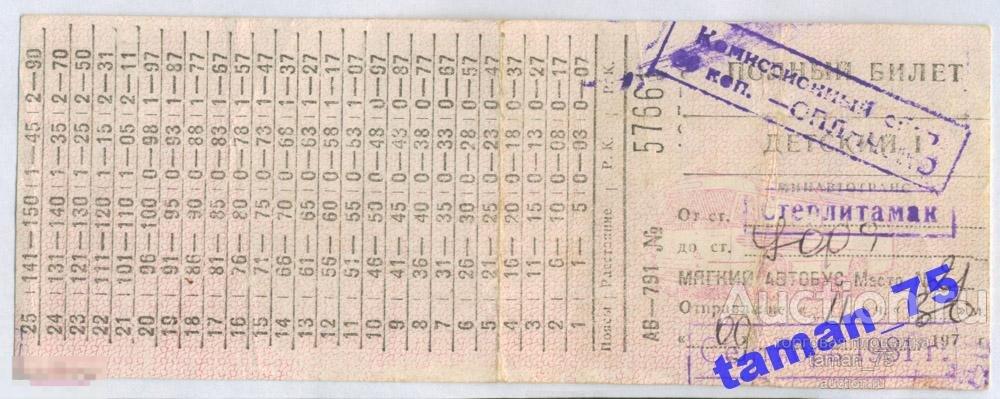 25 141—150 1—45 2—90
24 131—140 1—35 2—70
23 121—130 1—25 2—50
22 111—120 1—15 2—31
21 101—110 1—05 2—11
20 96—100 0—98 1—97
19 91—95 0—93 1—87
18 86—90 0—88 1—77
17 81—85 0—83 1—67
16 76—80 0—78 1—57
15 71—75 0—73 1—47
14 66—70 0—68 1—37
13 61—65 0—63 1—27
12 56—60 0—58 1—17
11 51—55 0—53 1—07
10 46—50 0—48 0—97
9 41—45 0—43 0—87
8 36—40 0—38 0—77
7 31—35 0—33 0—67
6 26—30 0—28 0—57
5 21—25 0—23 0—47
4 16—20 0—18 0—37
3 11—15 0—13 0—27
2 6—10 0—08 0—17
1 1—5 0—03 0—07
Пояса Расстояние Р. К. Р. К.
АВ—791 №
Комиссионный
коп.
ПОЛНЫЙ БИЛЕТ
ДЕТСКИЙ
МИНАВТОТРАНС
От ст. Стерлитамак
до ст.
МЯГКИЙ АВТОБУС Место
Отправление
197
taman_75
taman_75
auction.ru